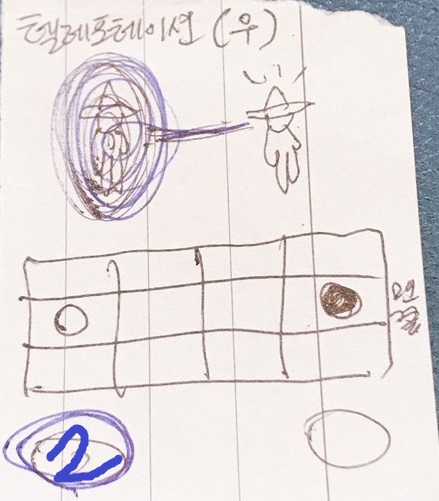 텔레포테이션 (우)
2